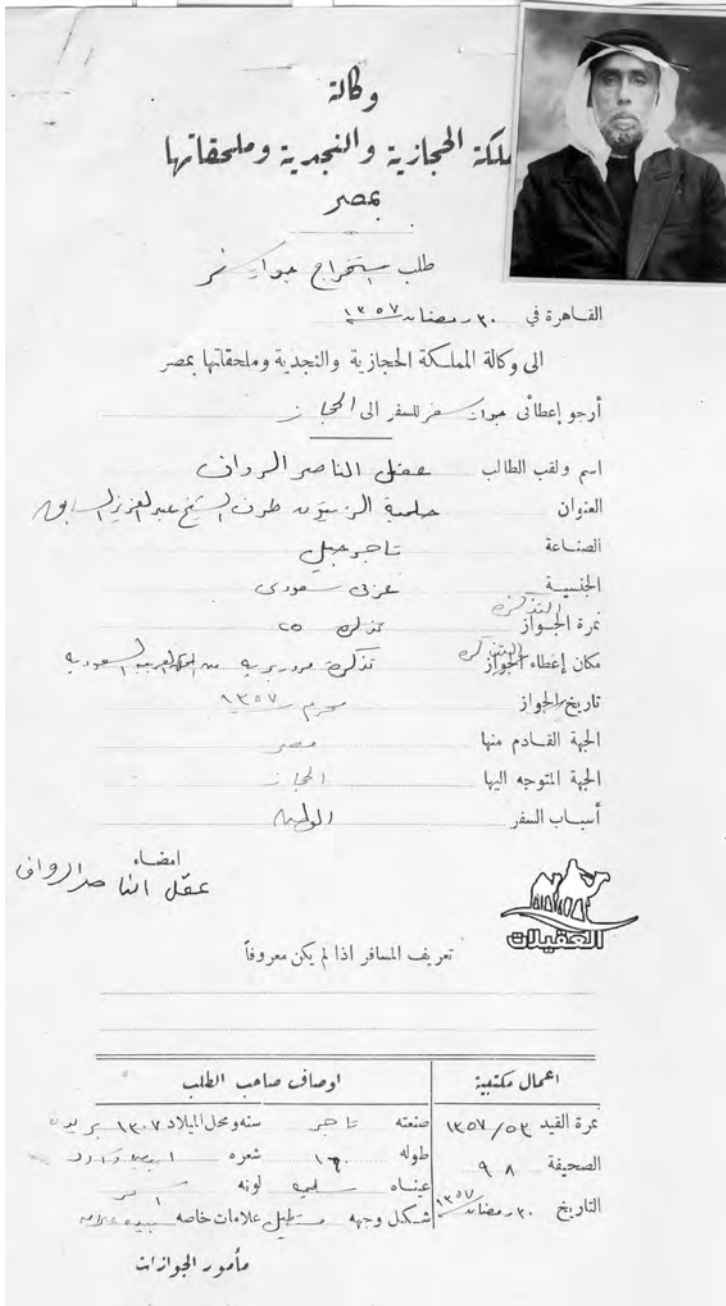 وكالة
ملكة الحجازية والنجدية وملحقاتها
بمصر
طلب استخراج جواز سفر
القاهرة في ٣٠ رمضان ١٣٥٧
الى وكالة المملكة الحجازية والنجدية وملحقاتها بمصر
أرجو إعطائى جواز سفر للسفر الى الحجاز
اسم ولقب الطالب عقل الناصر الرواف
العنوان حلمية الزيتون طرف الشيخ عبد العزيز
الصناعة تاجر
الجنسية عربى سعودى
التذكرة
نمرة الجواز تذكرة ٢٥
التذكرة
مكان إعطاء الجواز تذكرة مرور من السعودية
تاريخ الجواز محرم ١٣٥٧
الجهة القادم منها مصر
الجهة المتوجه اليها الحجاز
أسباب السفر
امضاء
عقل الناصر الرواف
العقيلات
تعريف المسافر اذا لم يكن معروفاً
اعمال مكتبية اوصاف صاحب الطلب
نمرة القيد ٥٣/١٣٥٧ صنعته تاجر سنه ومحل الميلاد ١٣٠٧ بريده
الصحيفة ٩٨ طوله شعره
عيناه لونه
التاريخ ٣٠ رمضان ١٣٥٧ شكل وجهه مستطيل علامات خاصه
مأمور الجوازات